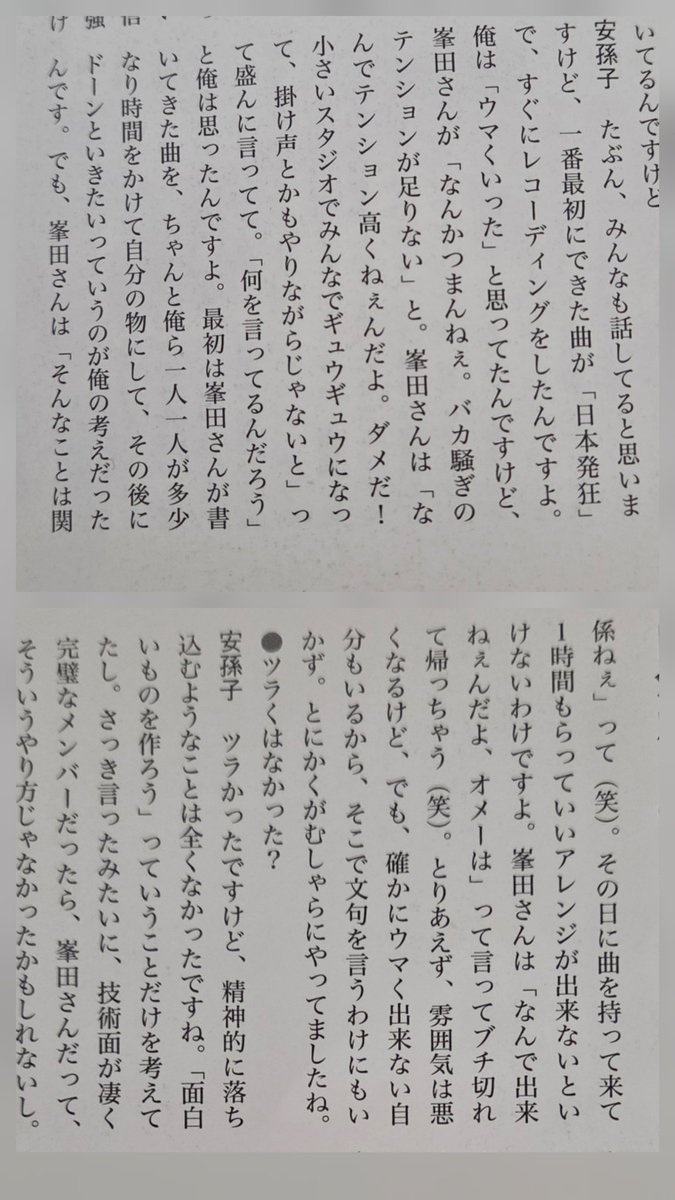 いてるんですけど
安孫子　たぶん、みんなも話してると思いま
すけど、一番最初にできた曲が「日本発狂」
で、すぐにレコーディングをしたんですよ。
俺は「ウマくいった」と思ってたんですけど、
峯田さんが「なんかつまんねぇ。バカ騒ぎの
テンションが足りない」と。峯田さんは「な
んでテンション高くねぇんだよ。ダメだ！
小さいスタジオでみんなでギュウギュウになっ
て、掛け声とかもやりながらじゃないと」っ
て盛んに言ってて。「何を言ってるんだろう」
と俺は思ったんですよ。最初は峯田さんが書
いてきた曲を、ちゃんと俺ら一人一人が多少
なり時間をかけて自分の物にして、その後に
ドーンといきたいっていうのが俺の考えだった
んです。でも、峯田さんは「そんなことは関
係ねぇ」って（笑）。その日に曲を持って来て
1時間もらっていいアレンジが出来ないとい
けないわけですよ。峯田さんは「なんで出来
ねぇんだよ、オメーは」って言ってブチ切れ
て帰っちゃう（笑）。とりあえず、雰囲気は悪
くなるけど、でも、確かにウマく出来ない自
分もいるから、そこで文句を言うわけにもい
かず。とにかくがむしゃらにやってましたね。
●ツラくはなかった？
安孫子　ツラかったですけど、精神的に落ち
込むようなことは全くなかったですね。「面白
いものを作ろう」っていうことだけを考えて
たし。さっき言ったみたいに、技術面が凄く
完璧なメンバーだったら、峯田さんだって、
そういうやり方じゃなかったかもしれないし。